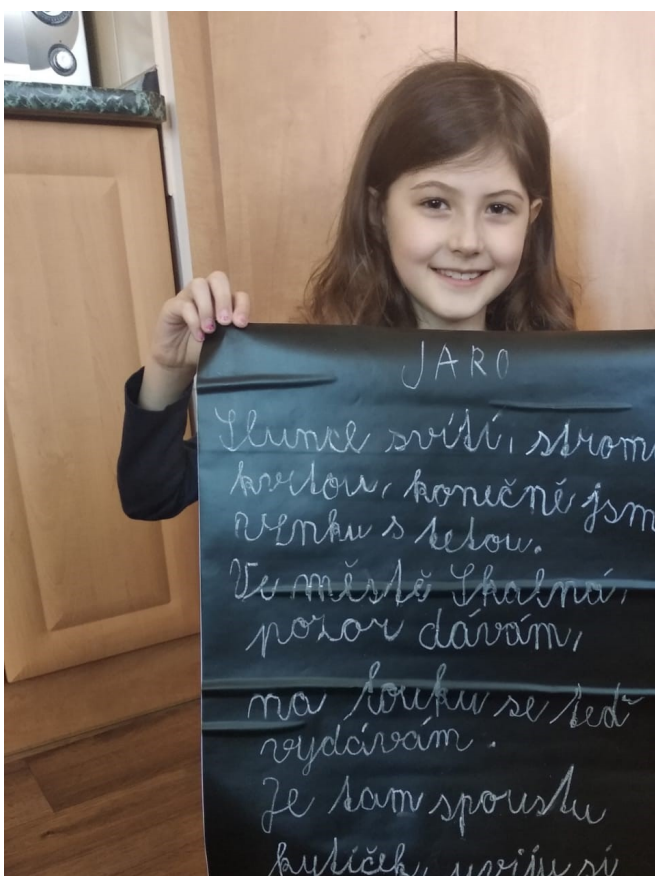 JARO
Slunce svítí, strom
kvetou, konečně jsm
venku s tetou.
Ve městě Skalná,
pozor dávám,
na louku se teď
vydávám.
Je tam spoustu
kytiček, uviju si